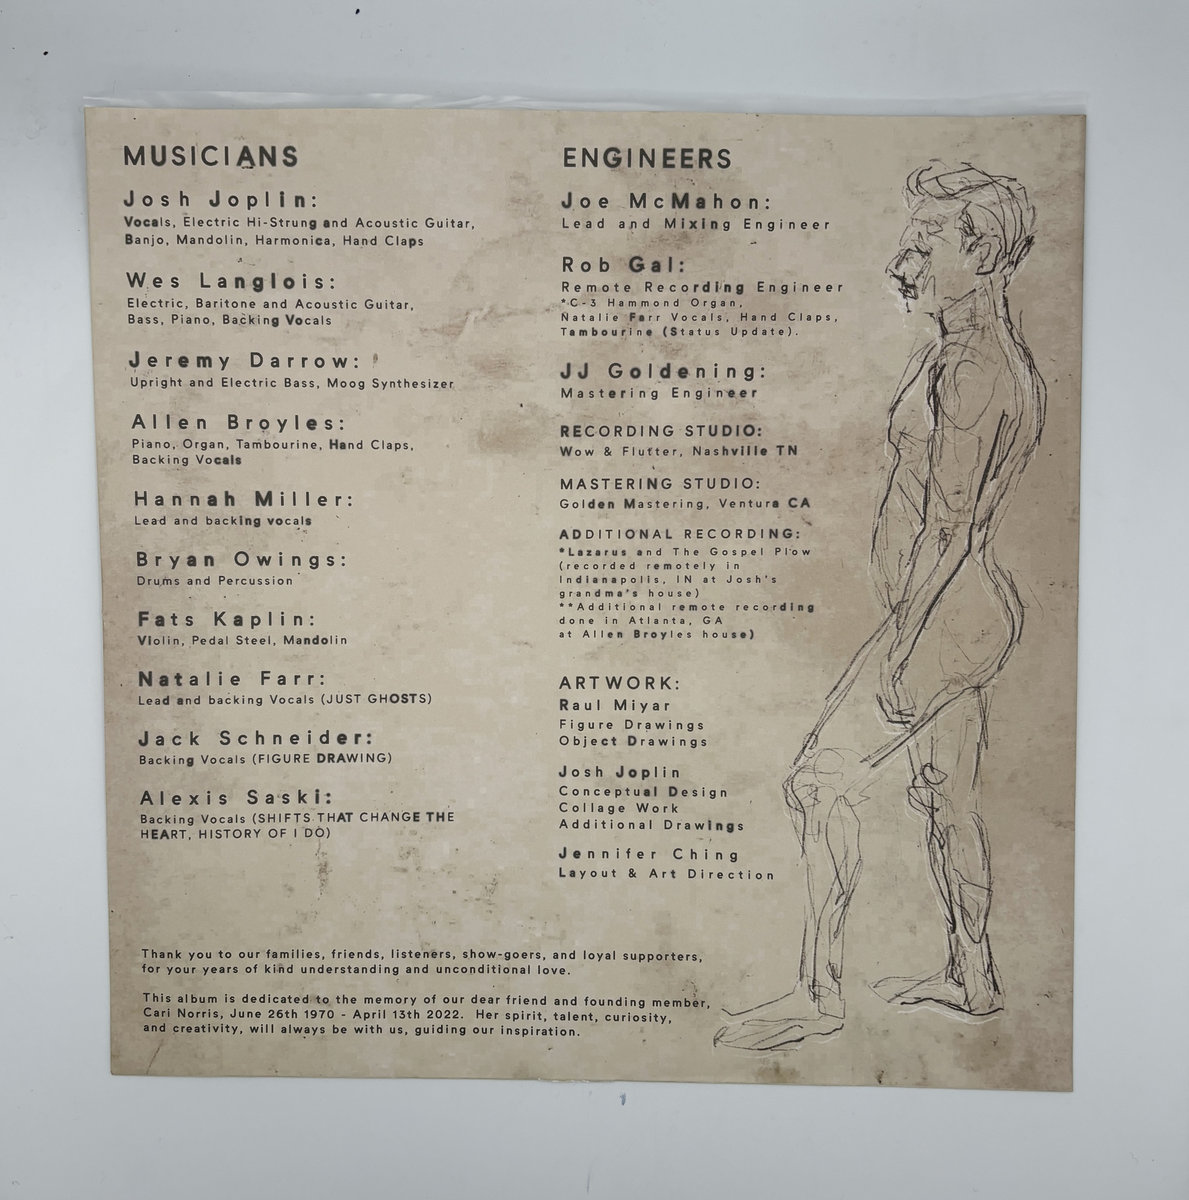 MUSICIANS
Josh Joplin:
Vocals, Electric Hi-Strung and Acoustic Guitar,
Banjo, Mandolin, Harmonica, Hand Claps
Wes Langlois:
Electric, Baritone and Acoustic Guitar,
Bass, Piano, Backing Vocals
Jeremy Darrow:
Upright and Electric Bass, Moog Synthesizer
Allen Broyles:
Piano, Organ, Tambourine, Hand Claps,
Backing Vocals
Hannah Miller:
Lead and backing vocals
Bryan Owings:
Drums and Percussion
Fats Kaplin:
Violin, Pedal Steel, Mandolin
Natalie Farr:
Lead and backing Vocals (JUST GHOSTS)
Jack Schneider:
Backing Vocals (FIGURE DRAWING)
Alexis Saski:
Backing Vocals (SHIFTS THAT CHANGE THE
HEART, HISTORY OF I DO)
ENGINEERS
Joe McMahon:
Lead and Mixing Engineer
Rob Gal:
Remote Recording Engineer
*C-3 Hammond Organ,
Natalie Farr Vocals, Hand Claps,
Tambourine (Status Update).
JJ Goldening:
Mastering Engineer
RECORDING STUDIO:
Wow & Flutter, Nashville TN
MASTERING STUDIO:
Golden Mastering, Ventura CA
ADDITIONAL RECORDING:
*Lazarus and The Gospel Plow
(recorded remotely in
Indianapolis, IN at Josh's
grandma's house)
**Additional remote recording
done in Atlanta, GA
at Allen Broyles house)
ARTWORK:
Raul Miyar
Figure Drawings
Object Drawings
Josh Joplin
Conceptual Design
Collage Work
Additional Drawings
Jennifer Ching
Layout & Art Direction
Thank you to our families, friends, listeners, show-goers, and loyal supporters,
for your years of kind understanding and unconditional love.
This album is dedicated to the memory of our dear friend and founding member,
Cari Norris, June 26th 1970 - April 13th 2022. Her spirit, talent, curiosity,
and creativity, will always be with us, guiding our inspiration.